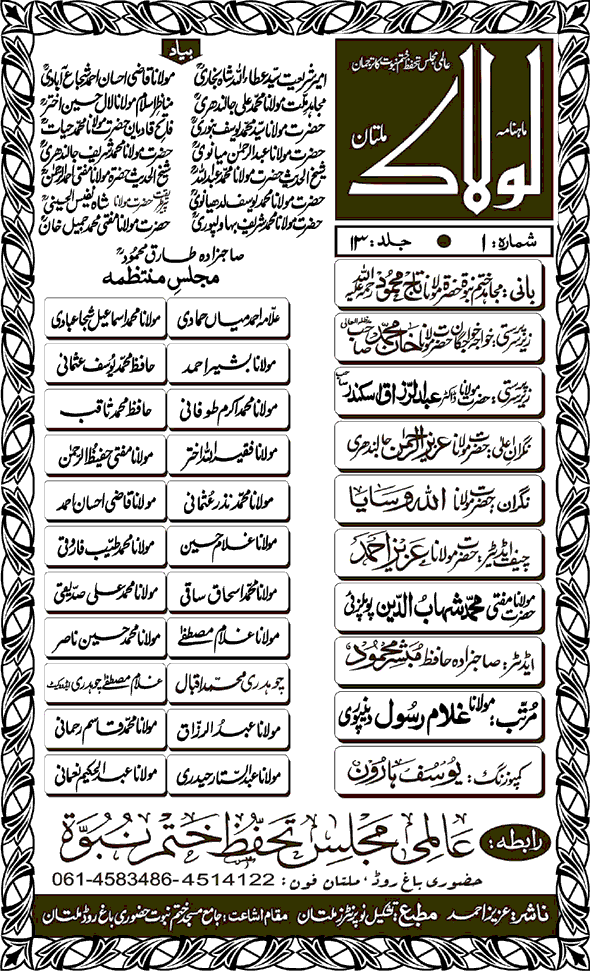 عالمی مجلس تحفظ ختم نبوت کا ترجمان
ماہنامہ
لولاک
ملتان
شمارہ: ۱ • جلد: ۱۳
بانی: مجاہد ختم نبوۃ حضرۃ مولانا تاج محمود رحمۃ اللہ علیہ
زیرسرپرستی: خواجہ خواجگان حضرت مولانا خان محمد صاحب مدظلہ العالی
زیرسرپرستی: حضرت مولانا ڈاکٹر عبدالرزاق اسکندر صاحب
نگران اعلیٰ: حضرت مولانا عزیز الرحمن جالندھری
نگران: حضرت مولانا اللہ وسایا
چیف ایڈیٹر: حضرت مولانا عزیز احمد
حضرت مولانا مفتی محمد شہاب الدین پوپلزئی
ایڈیٹر: صاحبزادہ حافظ مبشر محمود
مرتب: مولانا غلام رسول دینپوری
کمپوزنگ: یوسف ہارون
بیاد
امیر شریعت سید عطاء اللہ شاہ بخاریؒ مولانا قاضی احسان احمد شجاع آبادیؒ
مجاہد ملت مولانا محمد علی جالندھریؒ مناظر اسلام مولانا لال حسین اخترؒ
حضرت مولانا سید محمد یوسف بنوریؒ فاتح قادیان حضرت مولانا محمد حیاتؒ
حضرت مولانا عبدالرحمٰن میانویؒ حضرت مولانا محمد شریف جالندھریؒ
شیخ الحدیث حضرت مولانا محمد عبداللہؒ شیخ الحدیث حضرۃ مولانا مفتی احمد الرحمٰنؒ
حضرت مولانا محمد یوسف لدھیانویؒ حضرت مولانا شاہ نفیس الحسینیؒ
حضرت مولانا محمد شریف بہاولپوریؒ حضرت مولانا مفتی محمد جمیل خانؒ
صاحبزادہ طارق محمودؒ
مجلس منتظمہ
علامہ احمد میاں حمادی مولانا محمد اسماعیل شجاعبادی
مولانا بشیر احمد حافظ محمد یوسف عثمانی
مولانا محمد اکرم طوفانی حافظ محمد ثاقب
مولانا فقیر اللہ اختر مولانا مفتی حفیظ الرحمٰن
مولانا محمد نذر عثمانی مولانا قاضی احسان احمد
مولانا غلام حسین مولانا محمد طیب فاروقی
مولانا محمد اسحاق ساقی مولانا محمد علی صدیقی
مولانا غلام مصطفےٰ مولانا محمد حسین ناصر
چوہدری محمد اقبال غلام مصطفےٰ چوہدری ایڈووکیٹ
مولانا عبدالرزاق مولانا محمد قاسم رحمانی
مولانا عبدالستار حیدری مولانا عبدالحکیم نعمانی
رابطہ: عالمی مجلس تحفظ ختم نبوۃ
حضوری باغ روڈ، ملتان فون: 061-4583486-4514122
ناشر: عزیز احمد مطبع: تشکیل نو پرنٹرز ملتان مقام اشاعت: جامع مسجد ختم نبوت حضوری باغ روڈ ملتان